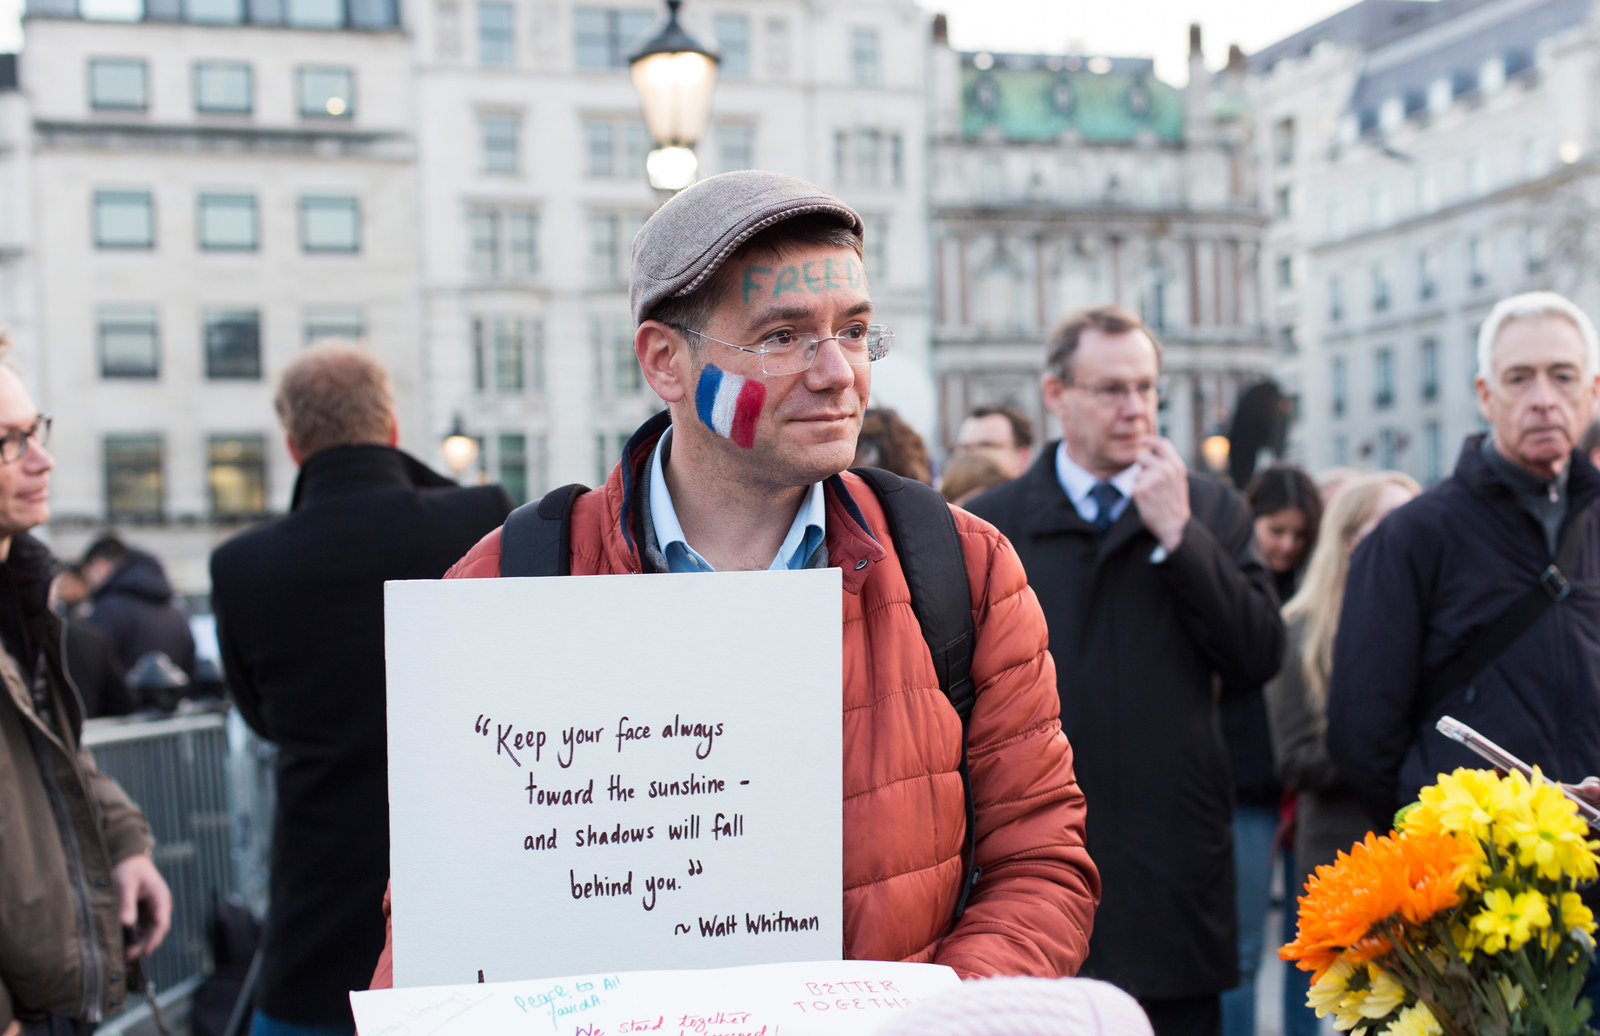 FREED
“Keep your face always
toward the sunshine -
and shadows will fall
behind you.”
~ Walt Whitman
Peace to All
BETTER
TOGETHE
We stand together